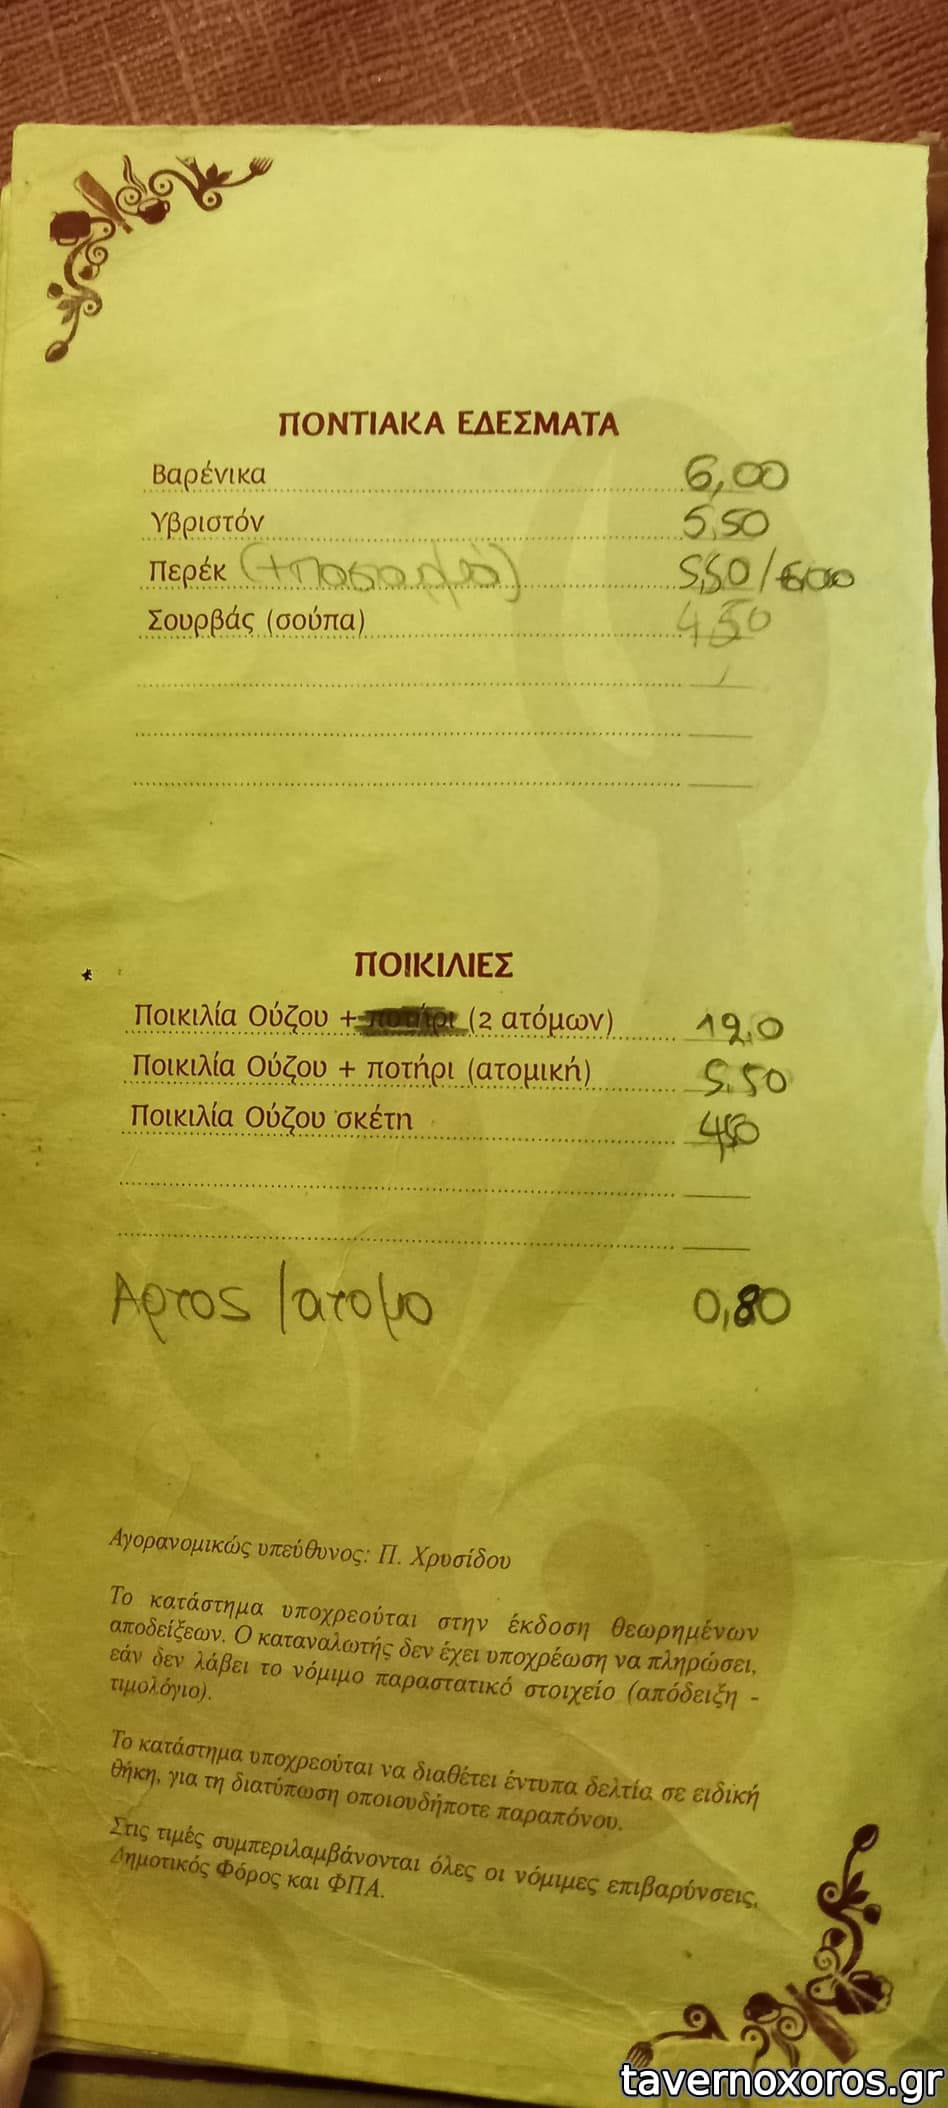 ΠΟΝΤΙΑΚΑ ΕΔΕΣΜΑΤΑ
Βαρένικα 6,00
Υβριστόν 5,50
Περέκ 5,50/600
Σουρβάς (σούπα) 4,50
ΠΟΙΚΙΛΙΕΣ
Ποικιλία Ούζου + ποτήρι (2 ατόμων)
Ποικιλία Ούζου + ποτήρι (ατομική) 5,50
Ποικιλία Ούζου σκέτη
Αρτος /ατομο 0,80
Αγορανομικώς υπεύθυνος: Π. Χρυσίδου
Το κατάστημα υποχρεούται στην έκδοση θεωρημένων
αποδείξεων. Ο καταναλωτής δεν έχει υποχρέωση να πληρώσει,
εάν δεν λάβει το νόμιμο παραστατικό στοιχείο (απόδειξη -
τιμολόγιο).
Το κατάστημα υποχρεούται να διαθέτει έντυπα δελτία σε ειδική
θήκη, για τη διατύπωση οποιουδήποτε παραπόνου.
Στις τιμές συμπεριλαμβάνονται όλες οι νόμιμες επιβαρύνσεις,
Δημοτικός Φόρος και ΦΠΑ.
tavernoxoros.gr